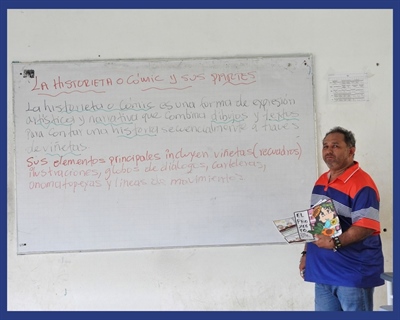 La Historieta o Cómic y sus partes
La historieta o Cómic es una forma de expresión
artística y narrativa que combina dibujos y textos
para contar una historia secuencialmente a través
de viñetas.
Sus elementos principales incluyen viñetas (recuadros)
ilustraciones, globos de diálogos, cartelera,
onomatopeyas y líneas de movimientos
EL